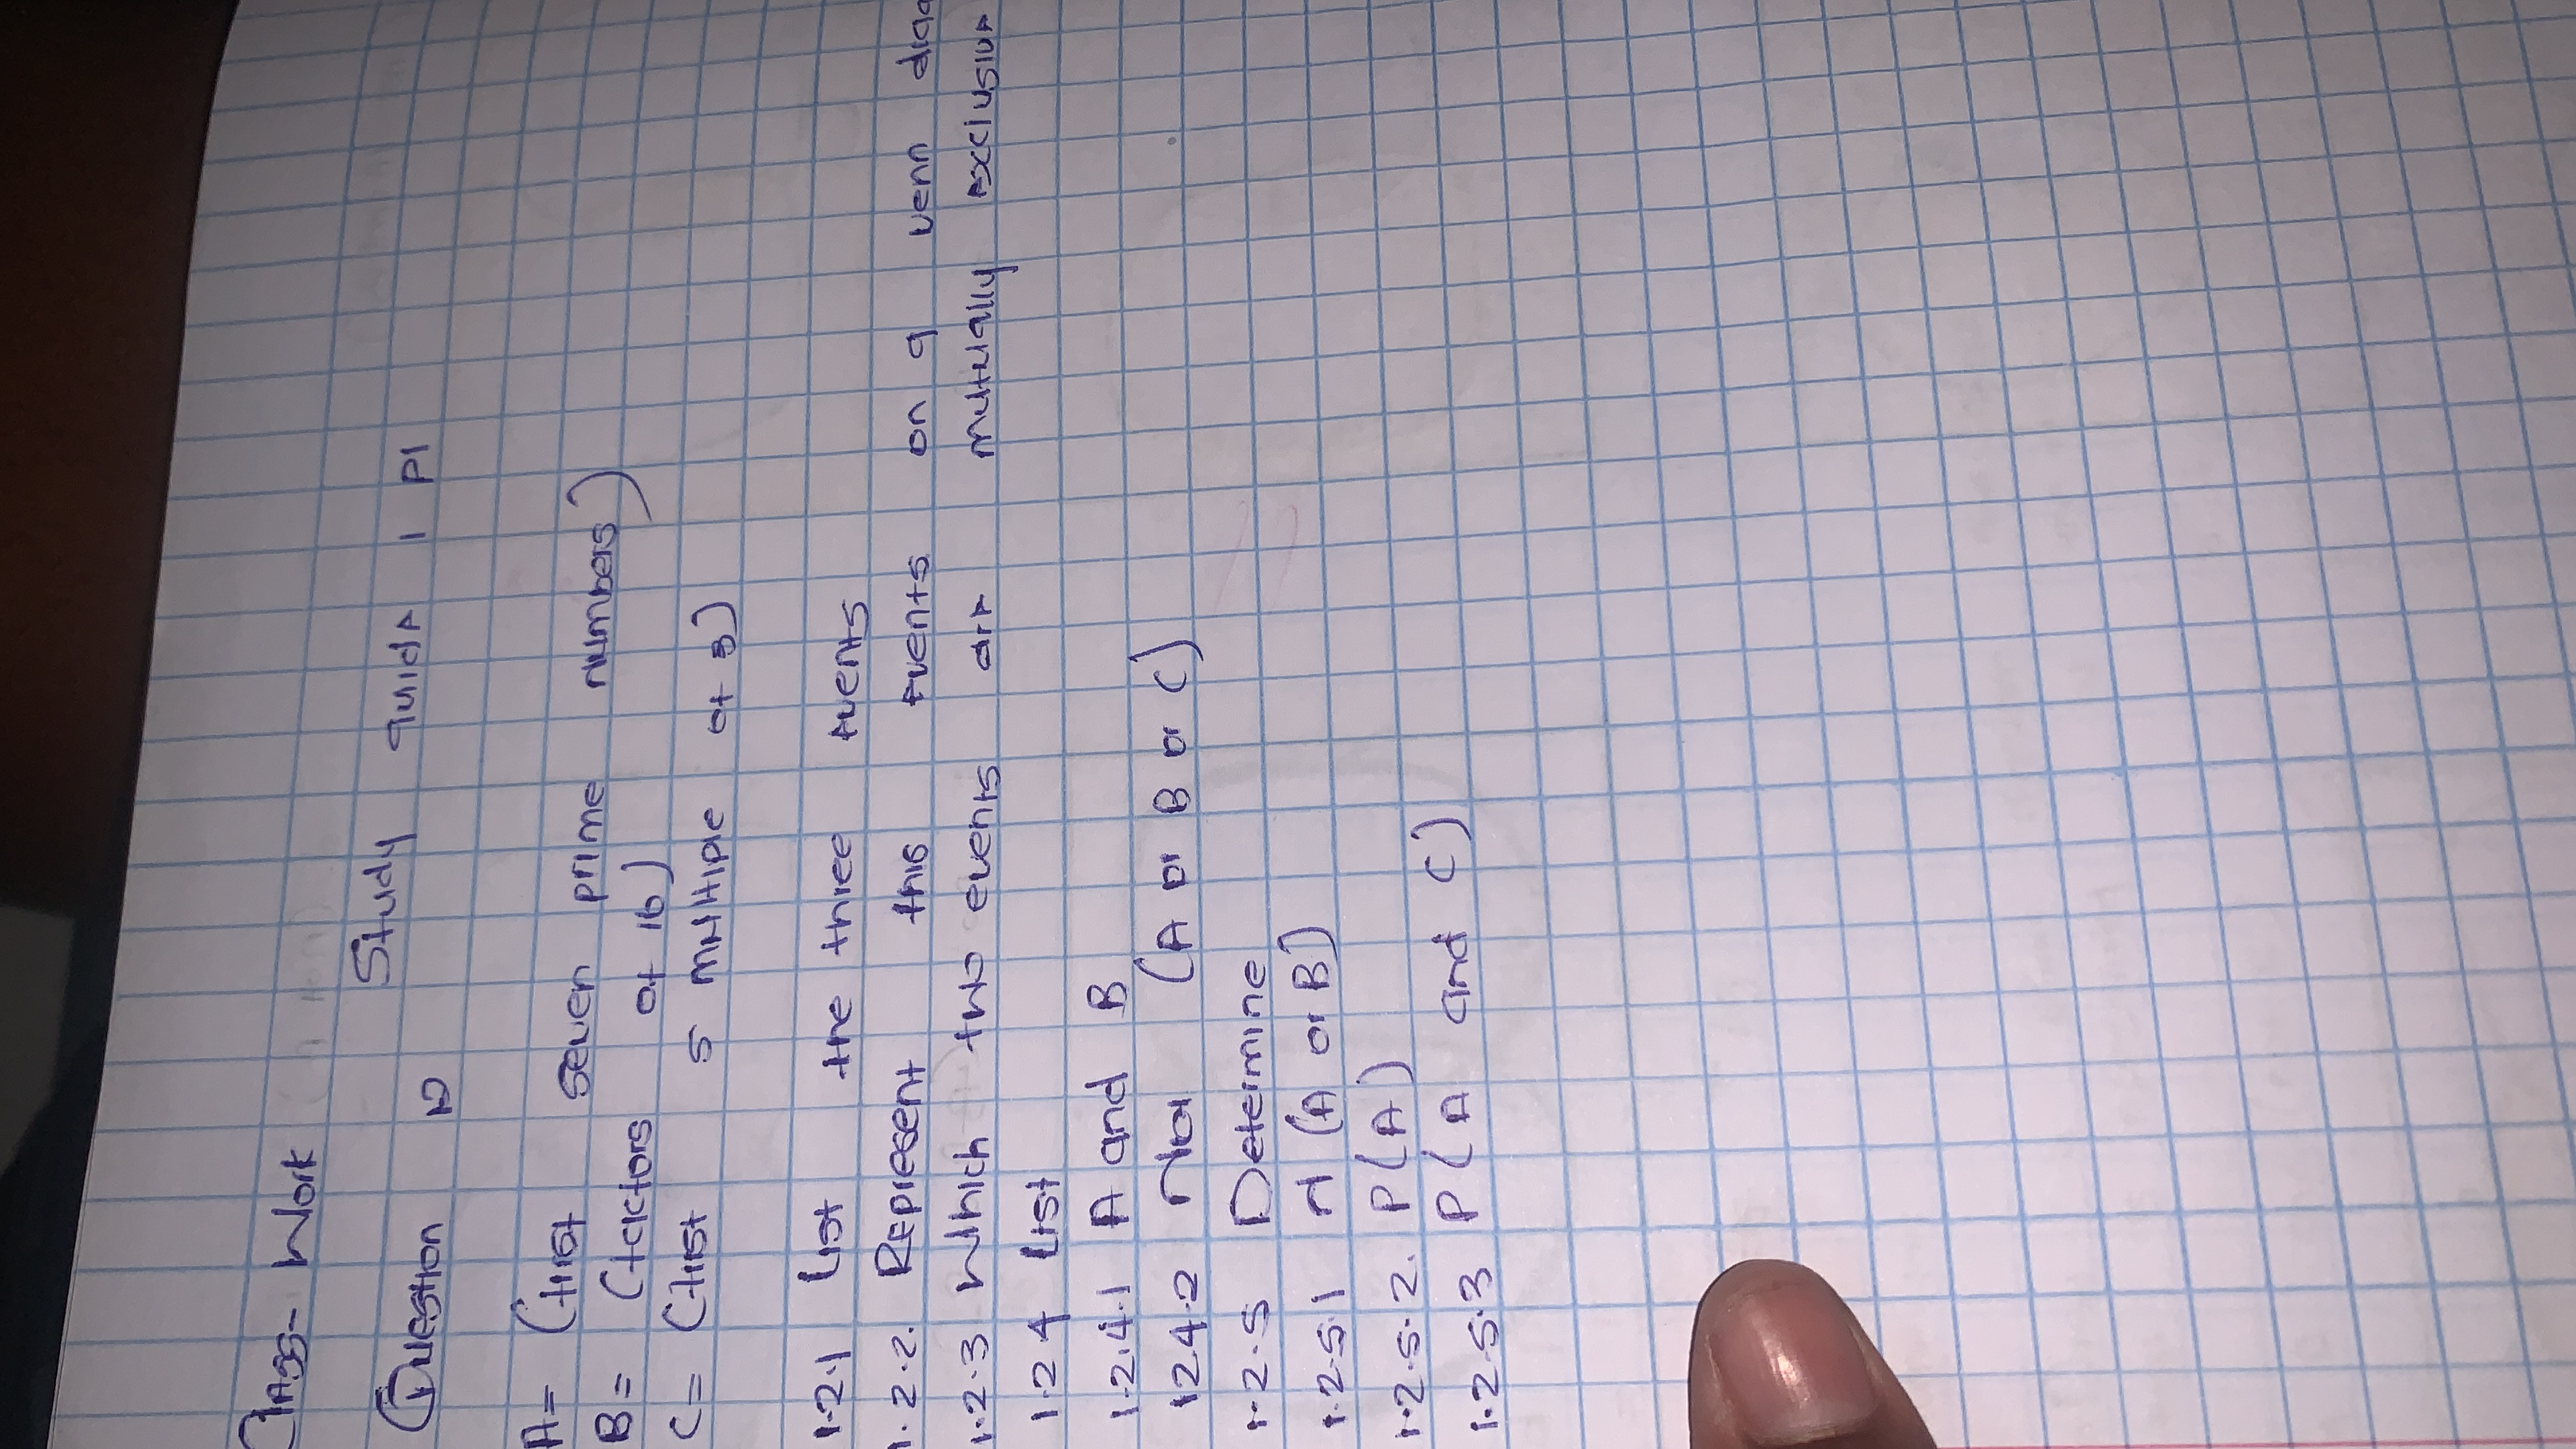 Class-Work
Study guide 1 P1
Question 12
A= (first seven prime numbers)
B= (factors of 16)
C= (first 5 multiple of 3)
1.2.1 List the three events
1.2.2. Represent this events on a venn diag
1.2.3 Which two events are mutually exclusive
1.2.4 List
1.2.4.1 A and B
1.2.4.2 Not (A or B or C)
1.2.5 Determine
1.2.5.1 n (A or B)
1.2.5.2. P(A)
1.2.5.3 P(A and C)